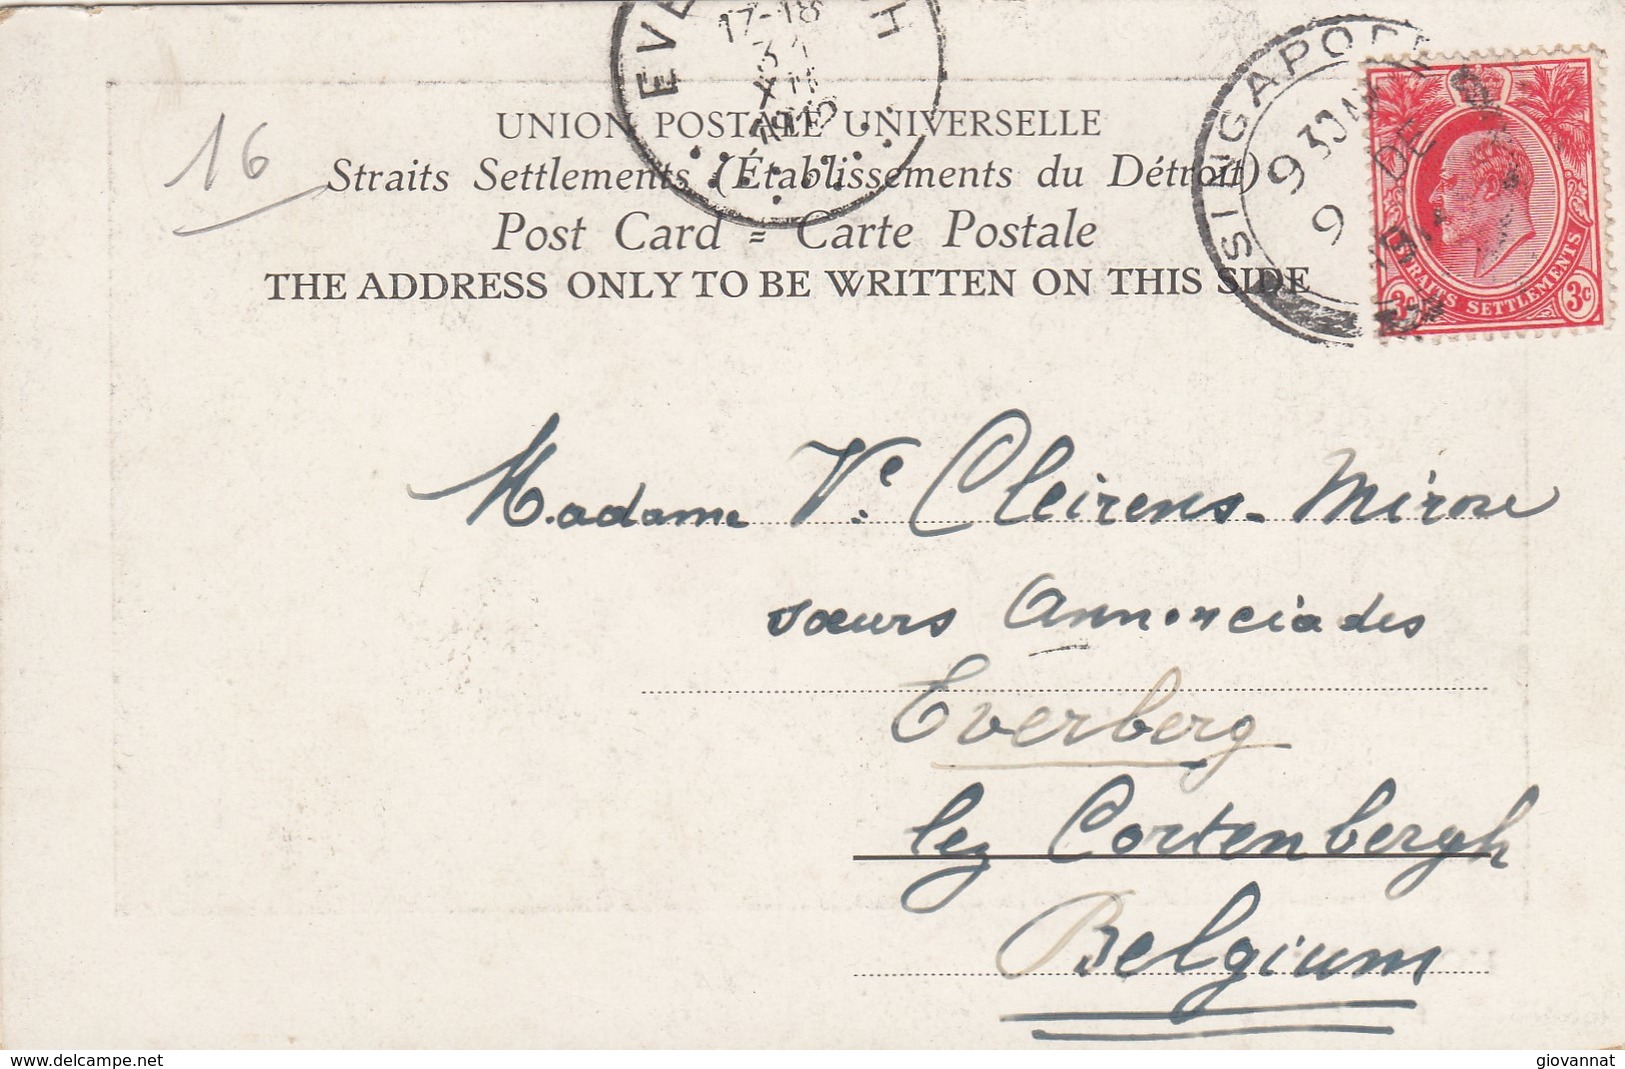 EVE H
17-18
31
XII
16
UNION POSTALE UNIVERSELLE
Straits Settlements (Établissements du Détroit)
Post Card = Carte Postale
THE ADDRESS ONLY TO BE WRITTEN ON THIS SIDE
SINGAPORE
9 30
9 DE
STRAITS SETTLEMENTS
3c 3c
Madame Ve. Cleirens-Mirose
sœurs Annonciades
Everberg
lez Cortenbergh
Belgium
www.delcampe.net
giovannat